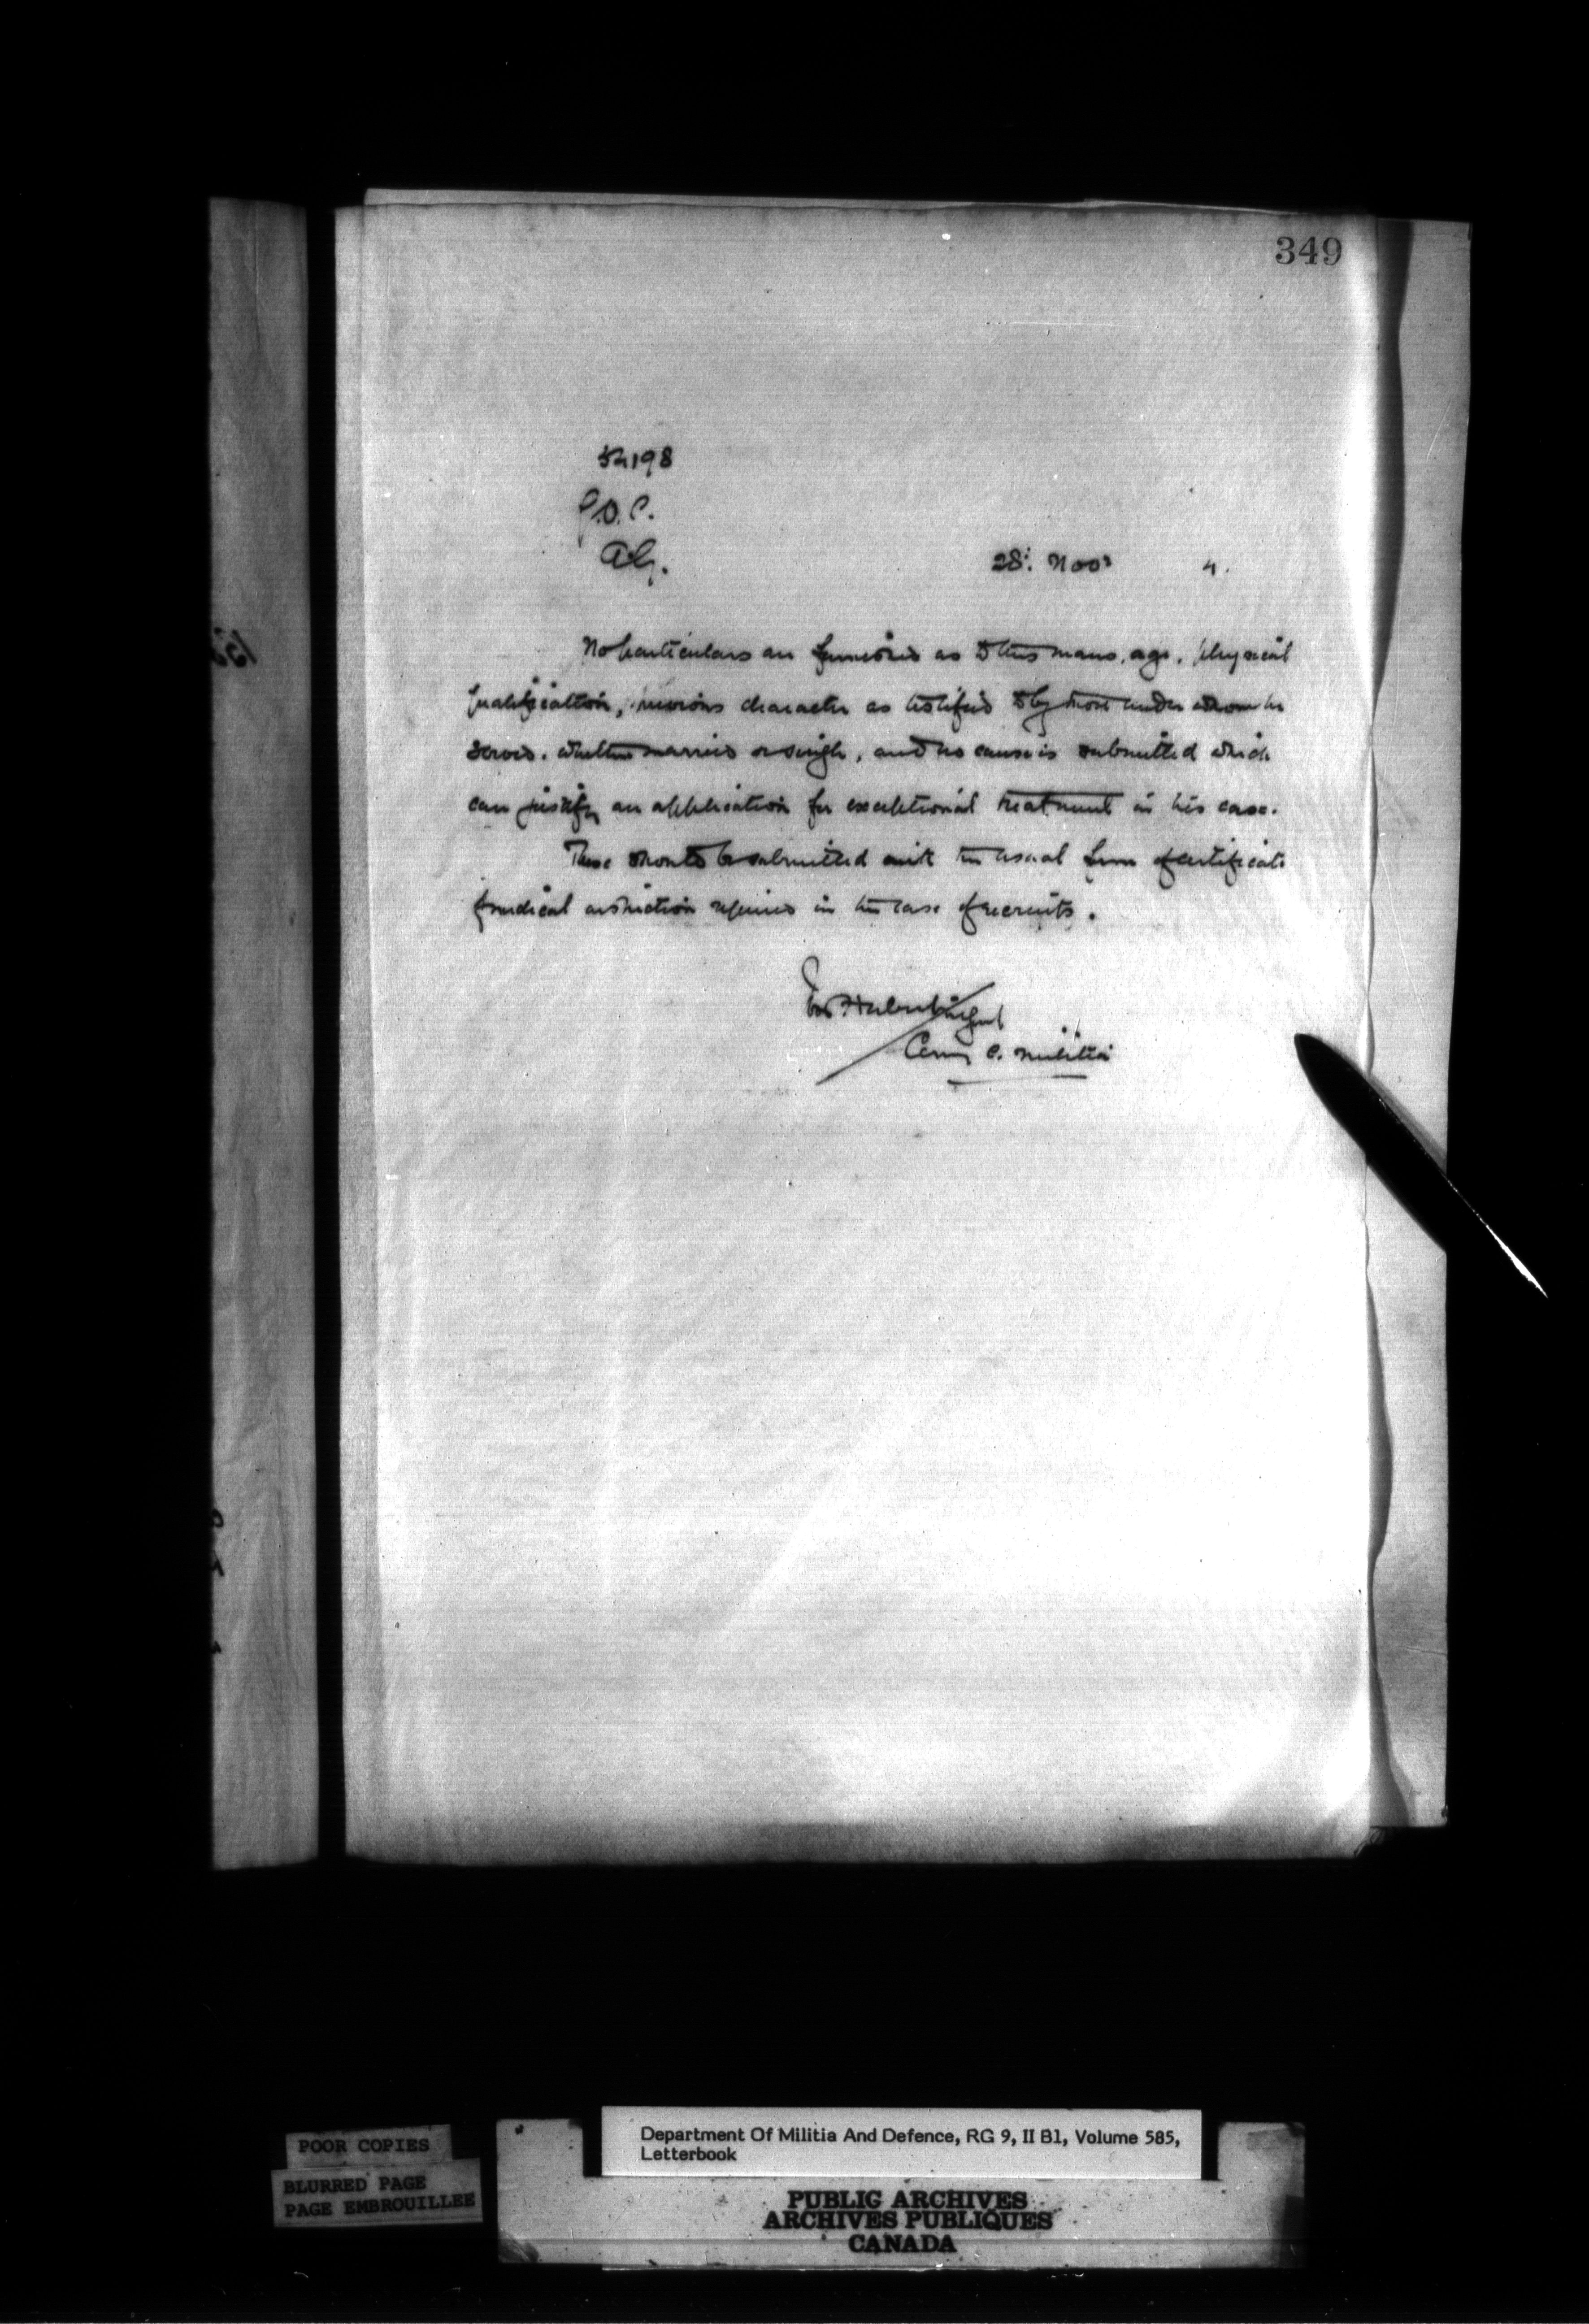 349
54198
G.O.C.
A.G.
28: Novr 4.
No particulars are furnished as to this mans, age, physical
qualification, previous character as testified to by those under whom he
served, whether married or single, and no cause is submitted which
can justify an application for exceptional treatment in his case.
These should be submitted with the usual form of certificate
of medical required in the case of recruits.
Ivor Herbert
Comg C. Militia
POOR COPIES
BLURRED PAGE
PAGE EMBROUILLEE
Department Of Militia And Defence, RG 9, II B1, Volume 585,
Letterbook
PUBLIC ARCHIVES
ARCHIVES PUBLIQUES
CANADA